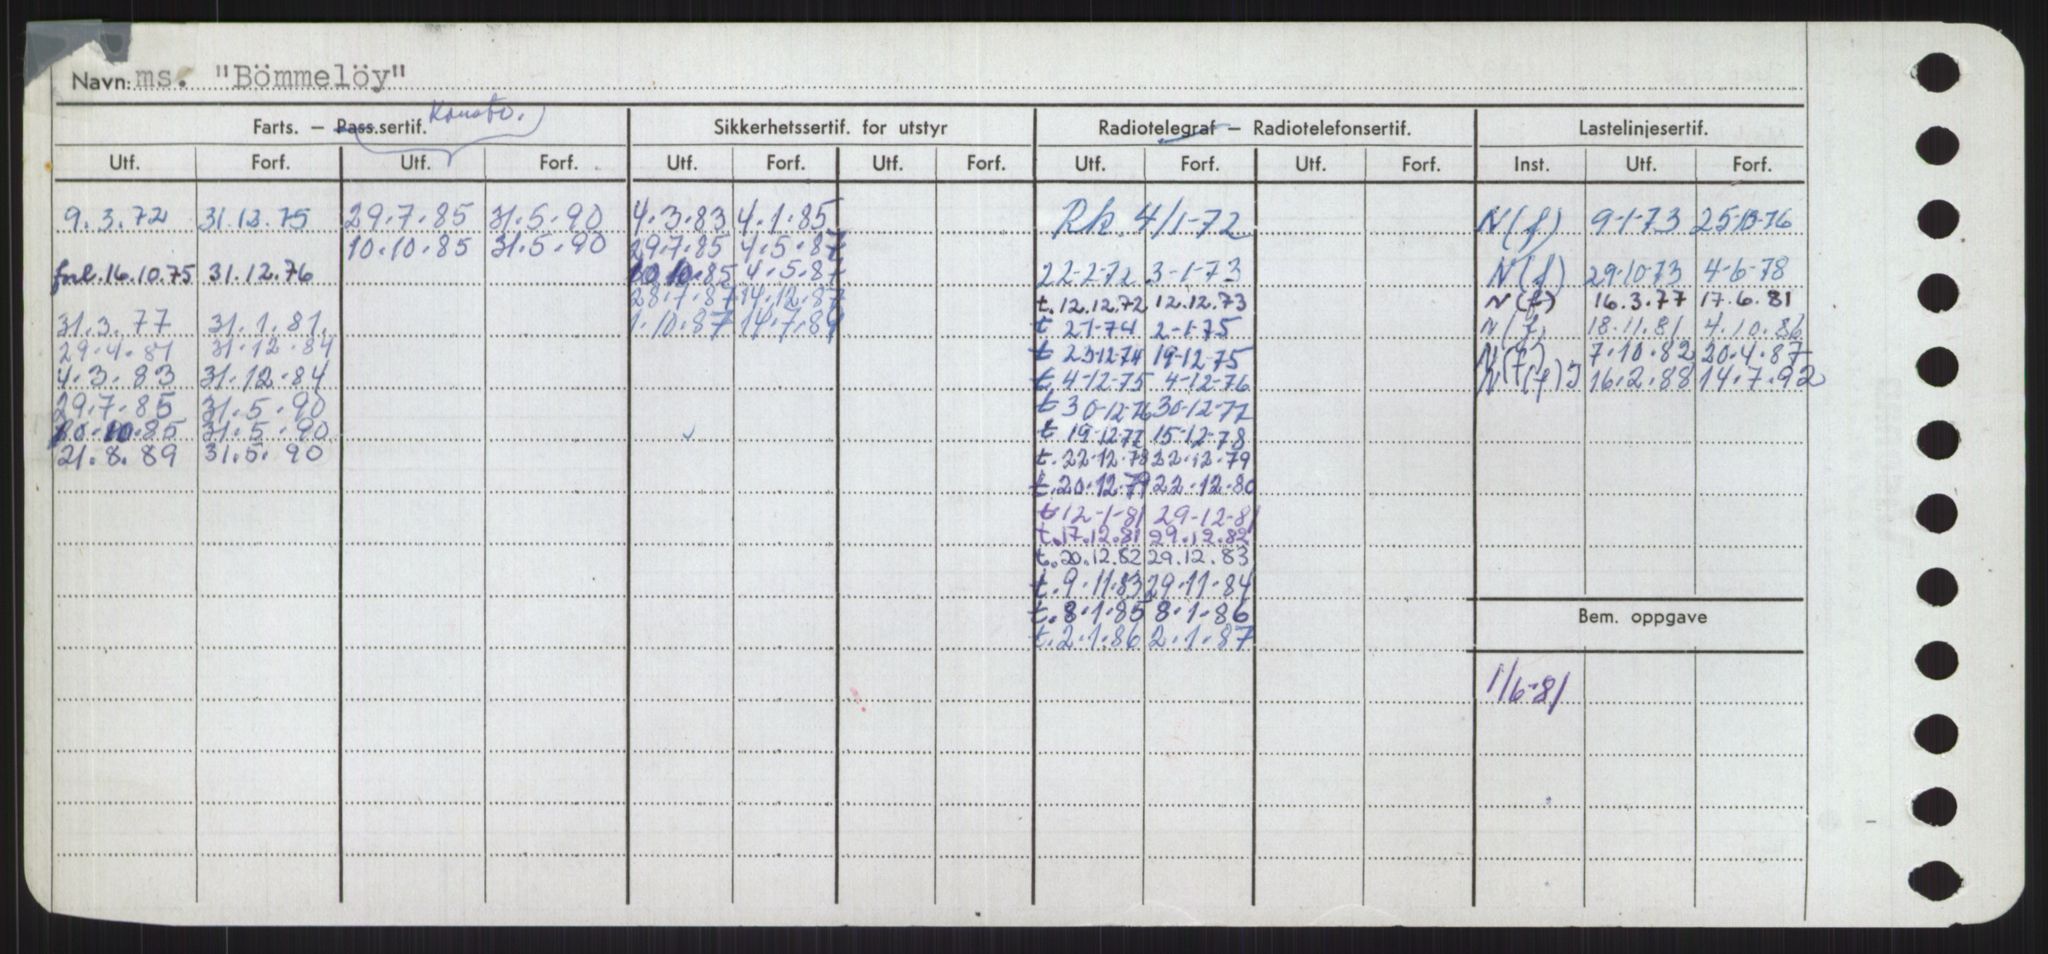 Navn: ms. "Bömmelöy"
Konstr.
Farts. — Pass.sertif. Sikkerhetssertif. for utstyr Radiotelegraf — Radiotelefonsertif. Lastelinjesertif.
Utf. Forf. Utf. Forf. Utf. Forf. Utf. Forf. Utf. Forf. Utf. Forf. Inst. Utf. Forf.
9.3.72 31.12.75 29.7.85 31.5.90 4.3.83 4.1.85 Rk. 4/1-72 N(f) 9-1-73
10.10.85 31.5.90 29.7.85 4.5.87
forl. 16.10.75 31.12.76 10.10.85 4.5.87 22-2-72 3-1-73 N(f) 29-10-73 4-6-78
28.7.87 14.12.87 t. 12.12.72 12.12.73 N(f) 16.3.77 17.6.81
31.3.77 31.1.81. 1.10.87 14.7.89 t 2-1-74 2-1-75 N(f) 18.11.81 4.10.86
29.4.81 31.12.84 t 23-12-74 19-12-75 N(f) 7.10.82 20.4.87
4.3.83 31.12.84 t. 4-12-75 4-12-76 N(f) 16.2.88 14.7.92
29.7.85 31.5.90 t 30-12-76 30-12-77
10.10.85 31.5.90 t 19-12-77 15-12-78
21.8.89 31.5.90 t. 22-12-78 22.12.79
t. 20.12.79 22.12.80
t 12-1-81 29-12-81
t. 17.12.81 29.12.82
t. 20.12.82 29.12.83
t. 9.11.83 29.11.84
t. 8.1.85 8.1.86
t. 2.1.86 2.1.87
Bem. oppgave
1/6-81